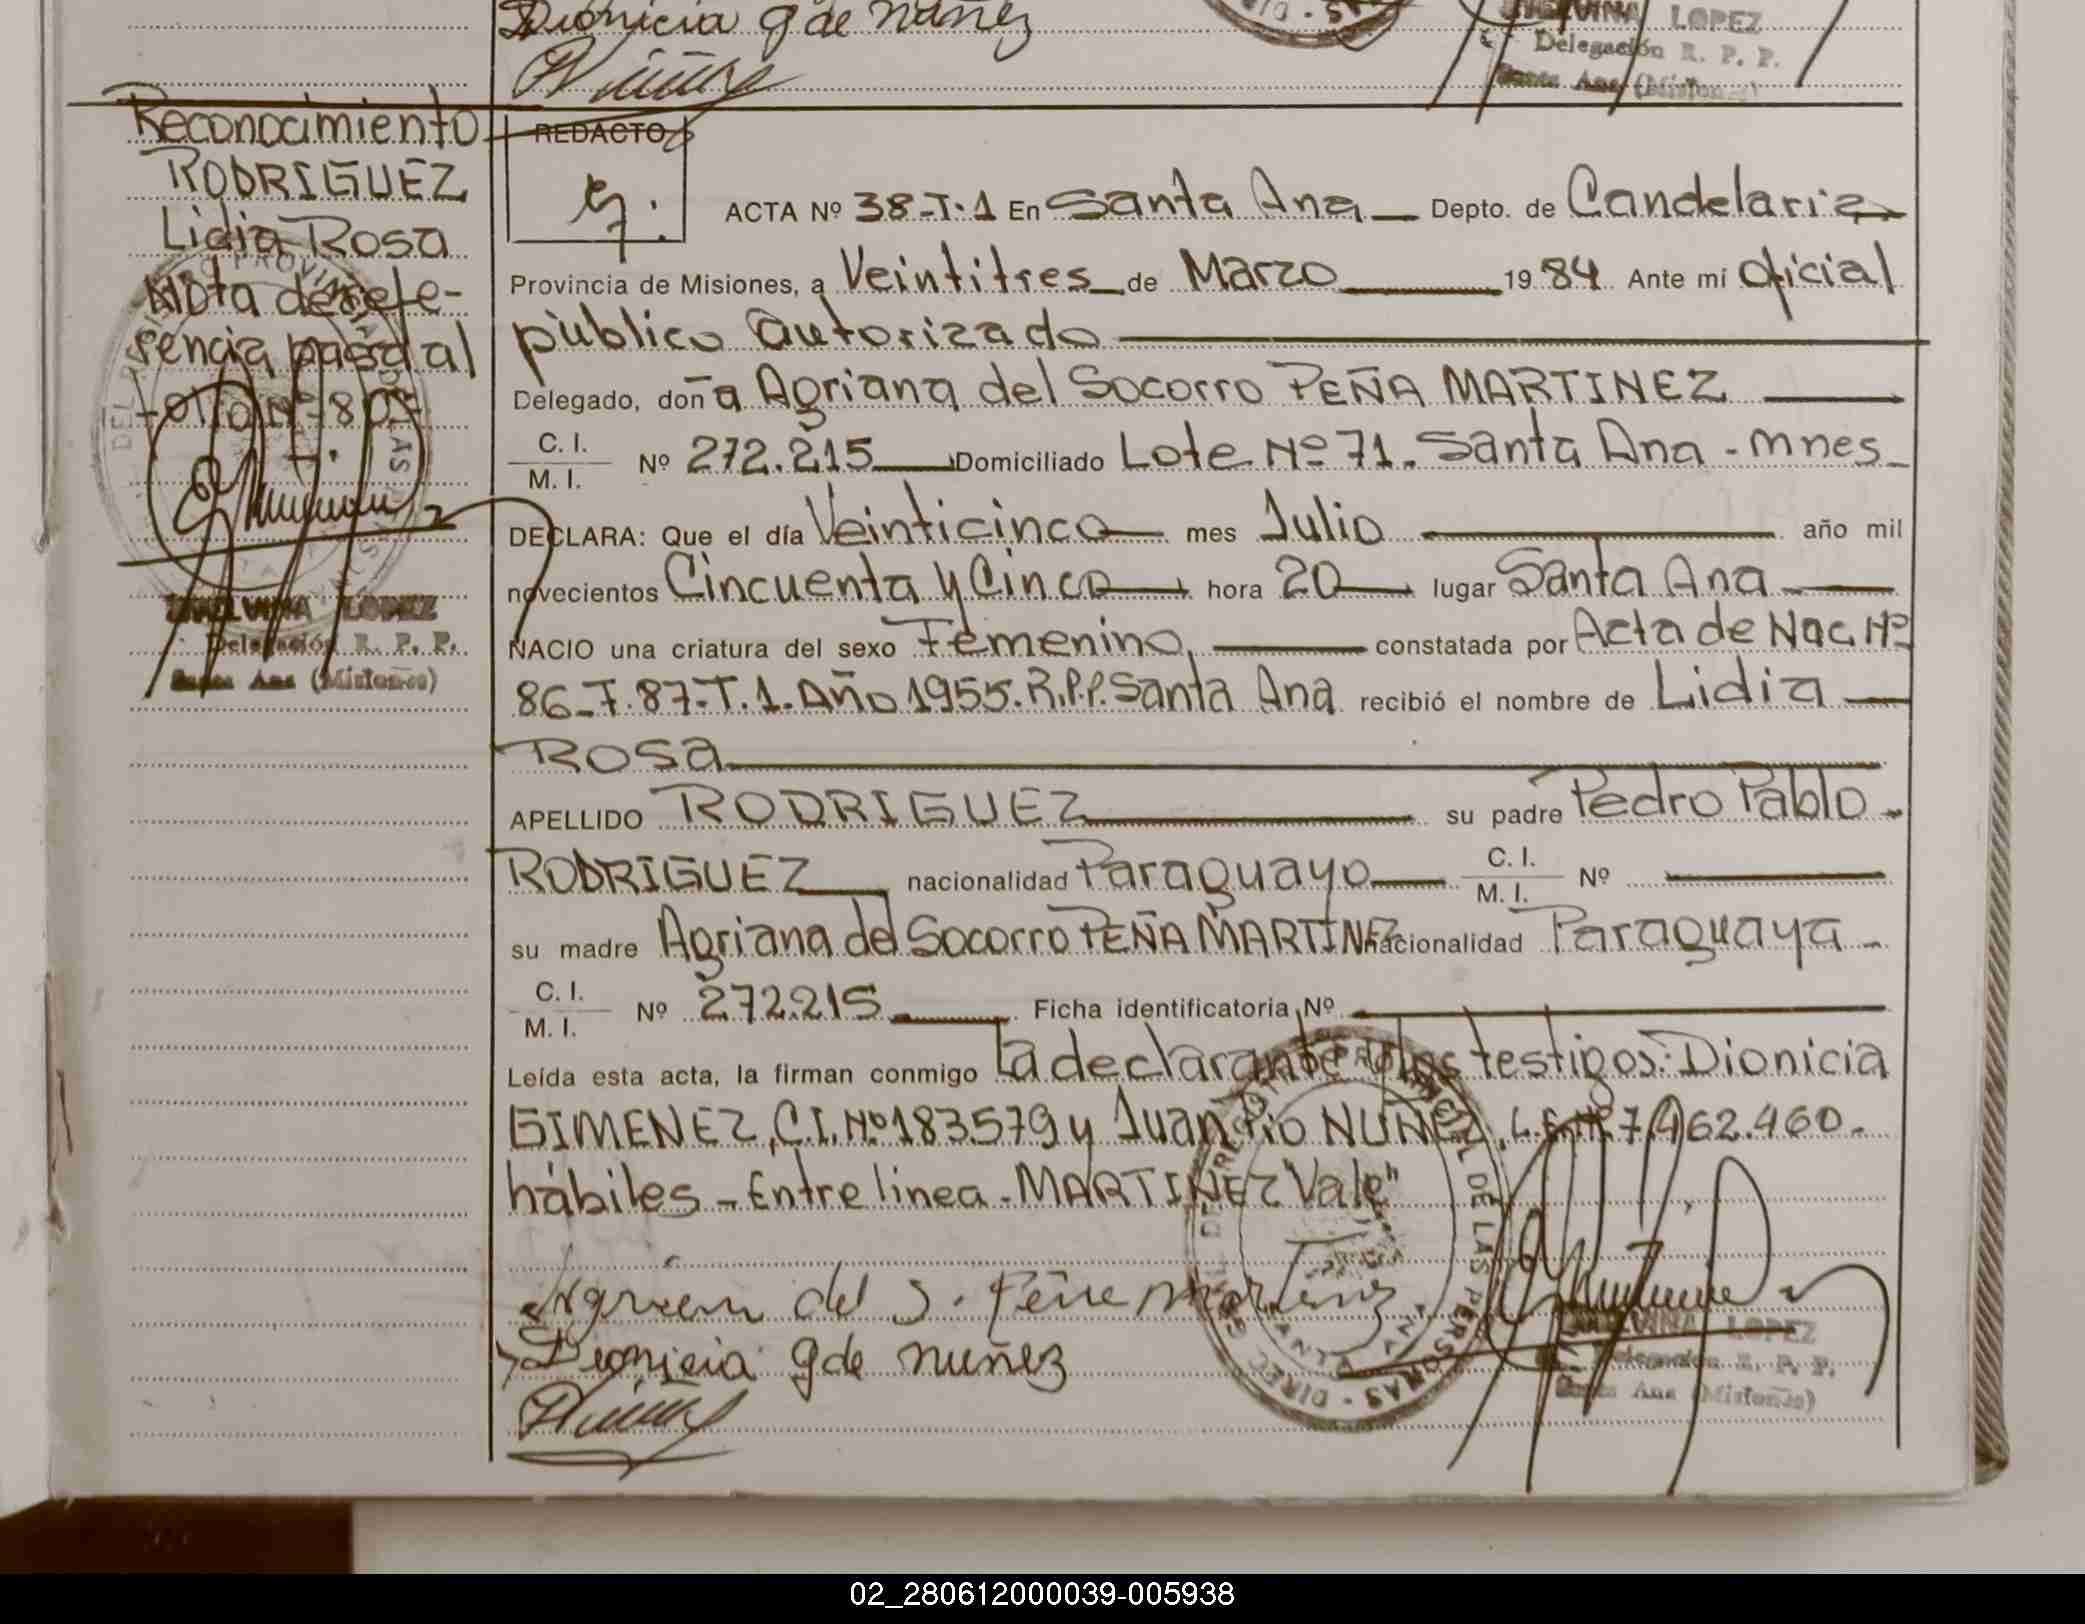 Dionicia g de Nuñez
Nuñez
MALVINA LOPEZ
Delegación R. P. P.
Santa Ana (Misiones)
Reconocimiento
RODRIGUEZ
Lidia Rosa
Nota de refe-
rencia pasada al
folio Nº 80
MALVINA LOPEZ
Delegación R. P. P.
Santa Ana (Misiones)
REDACTO
ACTA Nº 38-T.1 En Santa Ana Depto. de Candelaria
Provincia de Misiones, a Veintitres de Marzo 1984. Ante mi Oficial
público Autorizado
Delegado, doña Agriana del Socorro PEÑA MARTINEZ
C. I.
M. I. Nº 272.215 Domiciliado Lote Nº 71. Santa Ana - Mnes
DECLARA: Que el día Veinticinco mes Julio año mil
novecientos Cincuenta y Cinco hora 20 lugar Santa Ana
NACIO una criatura del sexo Femenino, constatada por Acta de Nac. Nº
86-F.87-T.1. Año 1955. R.P.P. Santa Ana recibió el nombre de Lidia
Rosa
APELLIDO RODRIGUEZ su padre Pedro Pablo
RODRIGUEZ nacionalidad Paraguayo C. I. M. I. Nº
su madre Agriana del Socorro PEÑA MARTINEZ nacionalidad Paraguaya
C. I.
M. I. Nº 272.215 Ficha identificatoria Nº
Leída esta acta, la firman conmigo la declarante y los testigos: Dionicia
GIMENEZ, C.I. Nº 183.579 y Juan Pio NUÑEZ, L.E. Nº 7.462.460.
hábiles - Entre linea - MARTINEZ "Vale"
Agriana del S. Peña Martinez
Dionicia g de Nuñez
Nuñez
MALVINA LOPEZ
Delegación R. P. P.
Santa Ana (Misiones)
02_280612000039-005938